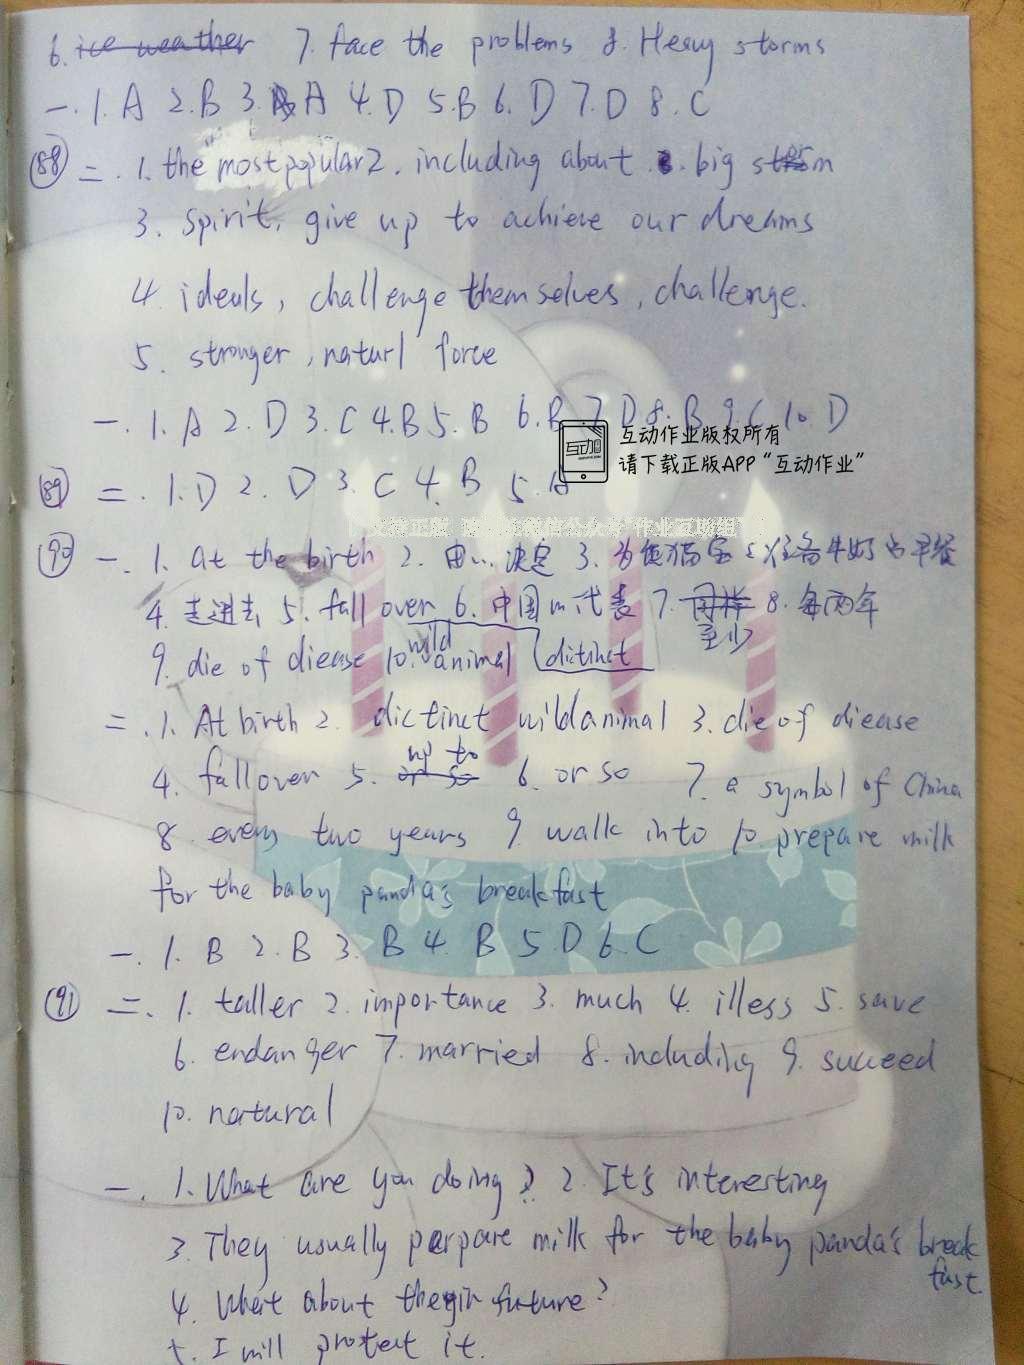 6. ice weather 7. face the problems 8. Heavy storms
一. 1. A 2. B 3. A 4. D 5. B 6. D 7. D 8. C
88 二. 1. the most popular 2. including about big storm
3. spirit, give up to achieve our dreams
4. ideals, challenge themselves, challenge.
5. stronger, naturl force
一. 1. A 2. D 3. C 4. B 5. B 6. B 7. D 8. B 9. C 10. D
互动作业版权所有
请下载正版APP“互动作业”
89 二. 1. D 2. D 3. C 4. B 5. A
90 一. 1. at the birth 2. 由…决定 3. 为熊猫宝宝准备牛奶当早餐
4. 走进去 5. fall over 6. 中国的代表 7. 同样 至少 8. 每两年
9. die of diease 10. wild animal dictinct
二. 1. At birth 2. dictinct wild animal 3. die of diease
4. fall over 5. or so up to 6. or so 7. a symbol of China
8. every two years 9. walk into 10. prepare milk
for the baby panda's breakfast
一. 1. B 2. B 3. B 4. B 5. D 6. C
91 二. 1. taller 2. importance 3. much 4. illess 5. save
6. endanger 7. married 8. including 9. succeed
10. natural
一. 1. What are you doing? 2. It's interesting
3. They usually perpare milk for the baby panda's breakfast.
4. What about their future?
5. I will protect it.